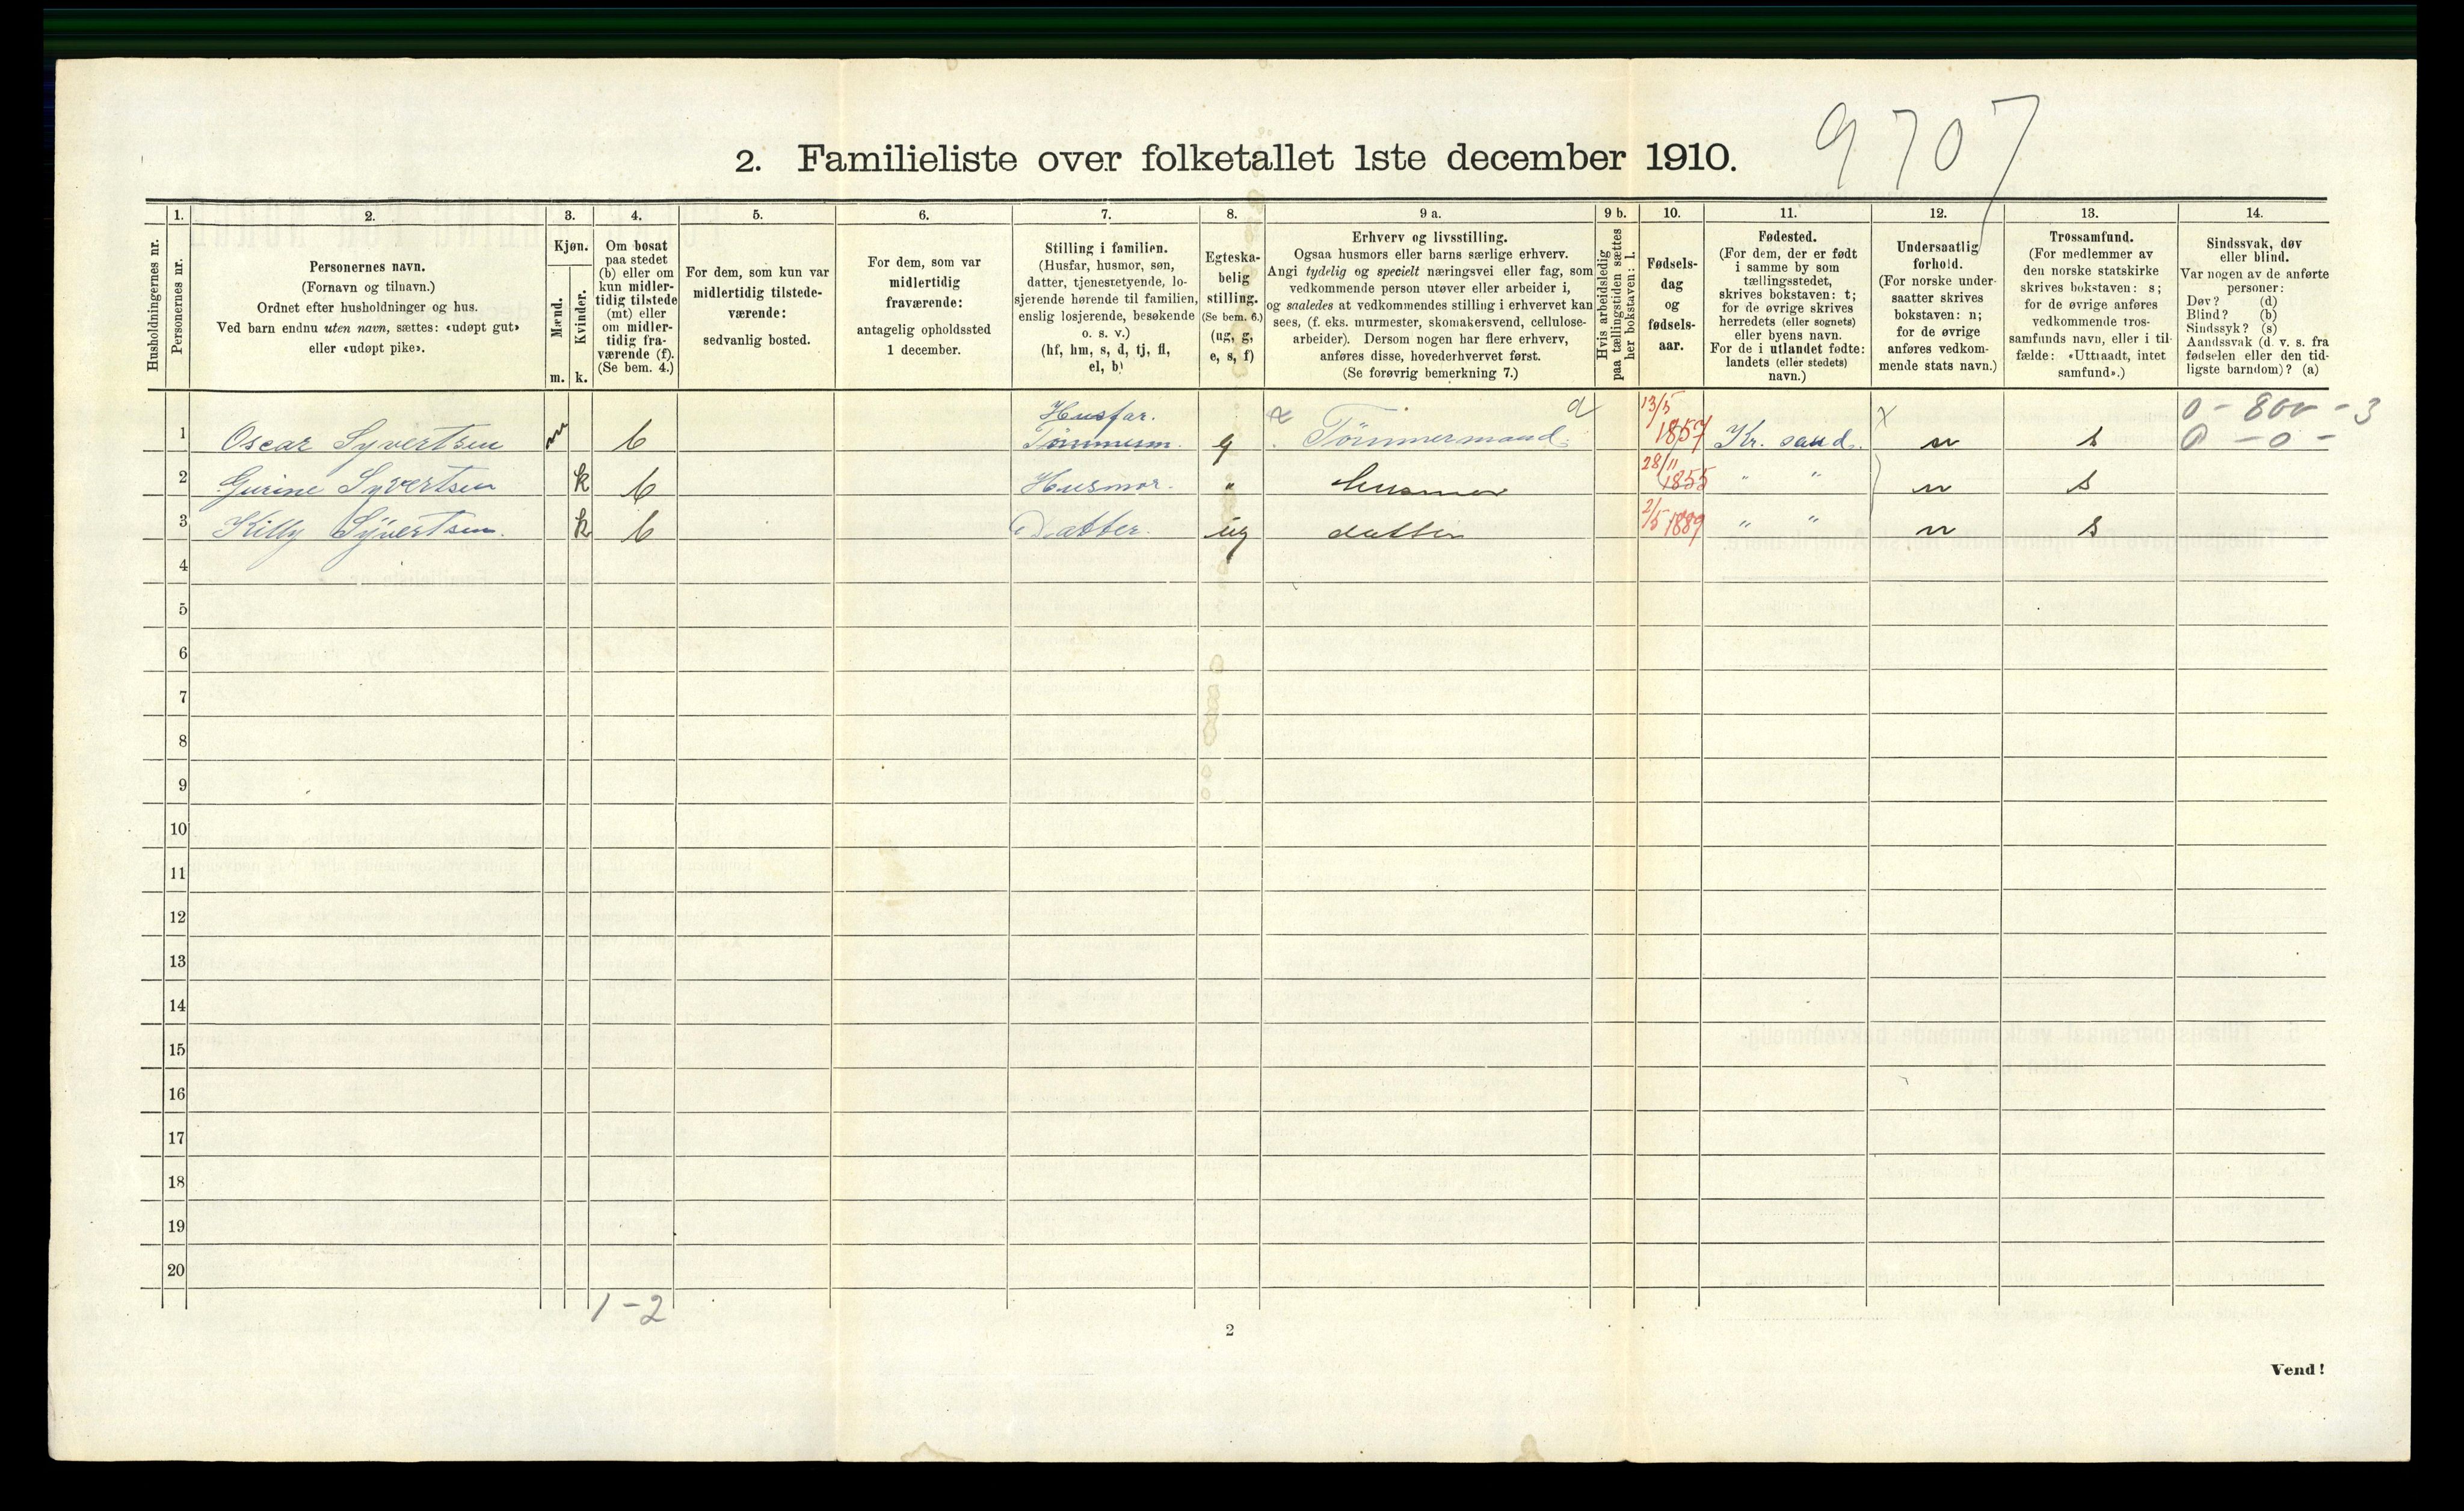 9707
2. Familieliste over folketallet 1ste december 1910.
Husholdningernes nr.
1.
Personernes nr.
2.
Personernes navn.
(Fornavn og tilnavn.)
Ordnet efter husholdninger og hus.
Ved barn endnu uten navn, sættes: «udøpt gut»
eller «udøpt pike».
3.
Kjøn.
Mænd.
Kvinder.
m. k.
4.
Om bosat
paa stedet
(b) eller om
kun midler-
tidig tilstede
(mt) eller
om midler-
tidig fra-
værende (f).
(Se bem. 4.)
5.
For dem, som kun var
midlertidig tilstede-
værende:
sedvanlig bosted.
6.
For dem, som var
midlertidig
fraværende:
antagelig opholdssted
1 december.
7.
Stilling i familien.
(Husfar, husmor, søn,
datter, tjenestetyende, lo-
sjerende hørende til familien,
enslig losjerende, besøkende
o. s. v.)
(hf, hm, s, d, tj, fl,
el, b)
8.
Egteska-
belig
stilling.
(Se bem. 6.)
(ug, g,
e, s, f)
9 a.
Erhverv og livsstilling.
Ogsaa husmors eller barns særlige erhverv.
Angi tydelig og specielt næringsvei eller fag, som
vedkommende person utøver eller arbeider i,
og saaledes at vedkommendes stilling i erhvervet kan
sees, (f. eks. murmester, skomakersvend, cellulose-
arbeider). Dersom nogen har flere erhverv,
anføres disse, hovederhvervet først.
(Se forøvrig bemerkning 7.)
9 b.
Hvis arbeidsledig
paa tællingstiden sættes
her bokstaven: l.
10.
Fødsels-
dag
og
fødsels-
aar.
11.
Fødested.
(For dem, der er født
i samme by som
tællingsstedet,
skrives bokstaven: t;
for de øvrige skrives
herredets (eller sognets)
eller byens navn.
For de i utlandet fødte:
landets (eller stedets)
navn.)
12.
Undersaatlig
forhold.
(For norske under-
saatter skrives
bokstaven: n;
for de øvrige
anføres vedkom-
mende stats navn.)
13.
Trossamfund.
(For medlemmer av
den norske statskirke
skrives bokstaven: s;
for de øvrige anføres
vedkommende tros-
samfunds navn, eller i til-
fælde: «Uttraadt, intet
samfund».)
14.
Sindssvak, døv
eller blind.
Var nogen av de anførte
personer:
Døv? (d)
Blind? (b)
Sindssyk? (s)
Aandssvak (d. v. s. fra
fødselen eller den tid-
ligste barndom)? (a)
Husfar. 13/5 x 0 - 800 - 3
1 Oscar Syvertsen m b Tømmerm. g Tömmermand 1857 Kr. sand. n s 0 - 0 -
2 Gurine Syvertsen k b Husmor. " husmor 28/11 1855 " " n s
3 Killy Syvertsen. k b Datter. ug datter 2/5 1889 " " n s
4
5
6
7
8
9
10
11
12
13
14
15
16
17
18
19
20
1 - 2
2
Vend!